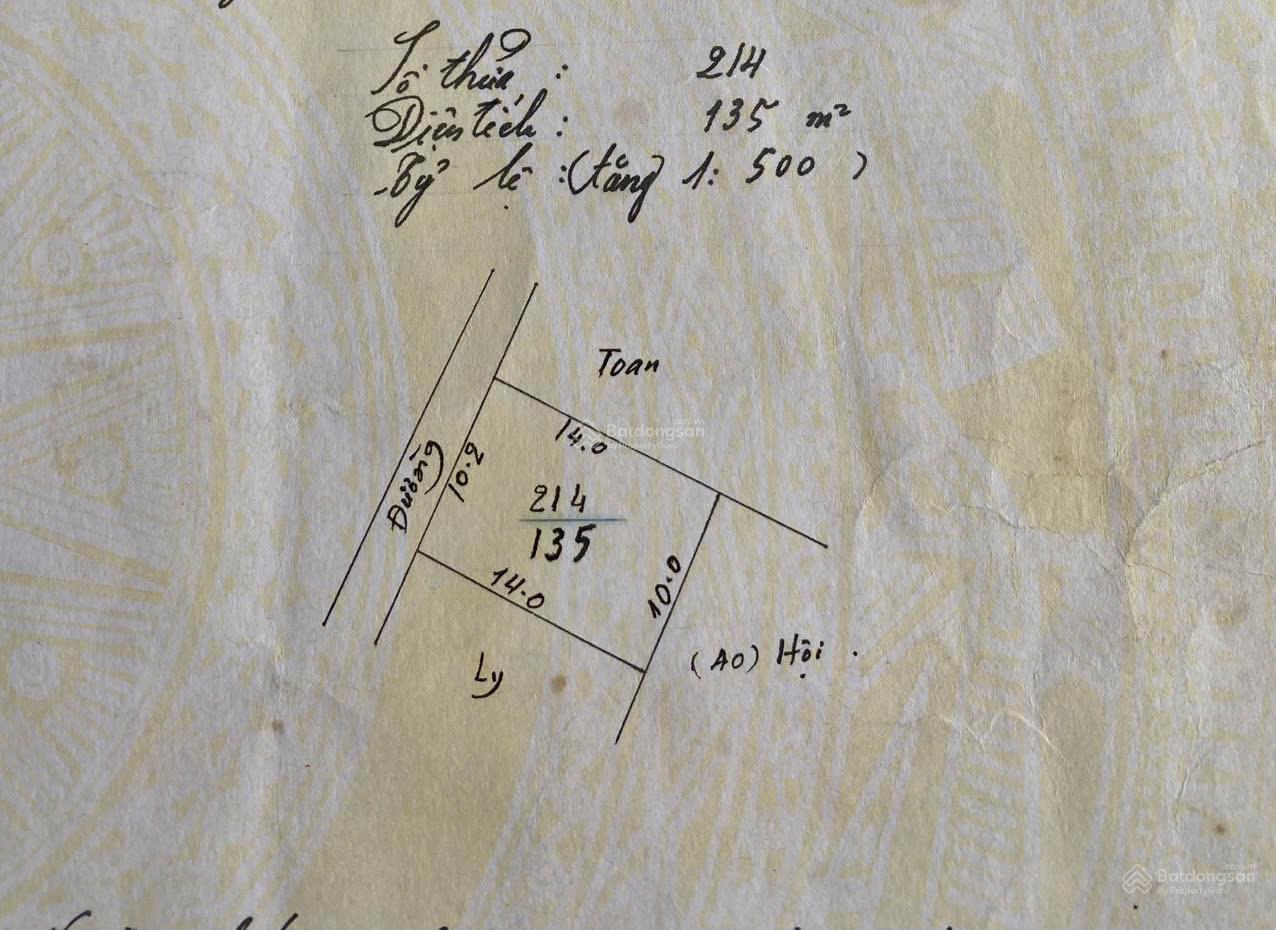 Số thửa : 214
Diện tích : 135 m²
Tỷ lệ : (tăng) 1: 500 )
Toan
14.0
Đường
10.2
214
135
14.0
10.0
(AO) Hội .
Ly
Batdongsan
.com.vn
by PropertyGuru
Batdongsan
.com.vn
by PropertyGuru